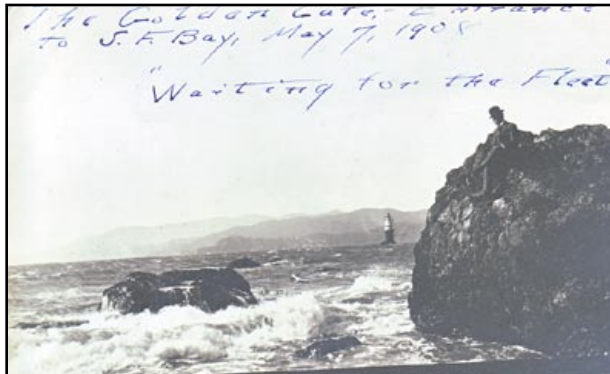 The Golden Gate,- Entrance
to S.F. Bay, May 7, 1908
"Waiting for the Fleet"